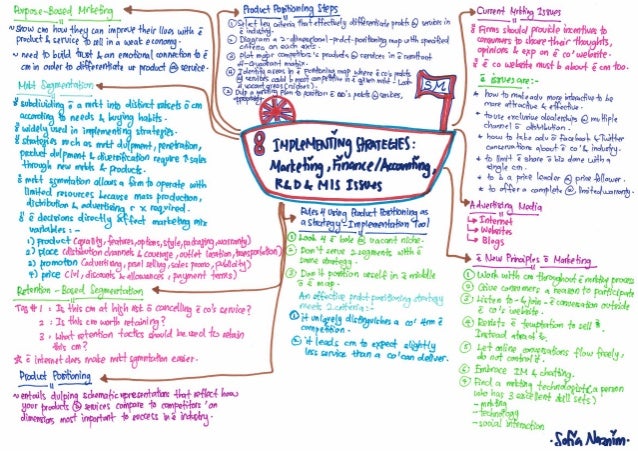 Purpose-Based Marketing
~ Show cm how they can improve their lives with ē
product & service to sell in a weak economy.
~ need to build trust & an emotional connection to ē
cm in order to differentiate ur product @ service.
Mrkt Segmentation
subdividing ē a mrkt into distinct subsets ē cm
according to needs & buying habits.
widely used in implementing strategies.
strategies such as mrkt dvlpment, penetration,
product dvlpment & diversification require ↑ sales
through new mrkts & products.
mrkt sgmntation allows a firm to operate with
limited resources because mass production,
distribution & advertising r x required.
ē decisions directly affect marketing mix
variables : -
1) product (quality, features, options, style, packaging, warranty)
2) place (distribution channels & coverage, outlet location, transportation)
3) promotion (advertising, prsnl selling, sales promo, publicity)
4) price (lvl, discounts & allowances, payment terms)
Retention-Based Segmentation
Tag # 1 : Is this cm at high risk ē cancelling ē co's service?
2 : Is this cm worth retaining?
3 : What retention tactics should be used to retain
this cm?
ē internet does make mrkt sgmntation easier.
Product Positioning
~ entails dvlping schematic representations that reflect how
your products @ services compare to competitors' on
dimensions most important to success in ē industry.
Product Positioning Steps
① Select key criteria that effectively differentiate prdcts @ services in
ē industry.
② Diagram a 2-dimensional-prdct-positioning map with specified
criteria on each axis.
③ Plot major competitors's products @ services in ē resultant
4-quadrant matrix.
④ Identify areas in ē positioning map where ē co's prdcts
@ services could b most competitive in ē given mrkt - Look
4 vacant areas (niches).
⑤ Dvlp a mrkting plan to position ē co's prdcts @ services,
SM
8 IMPLEMENTING STRATEGIES:
Marketing, Finance/Accounting,
R&D & MIS Issues
Rules 4 Using Product Positioning as
a Strategy-Implementation Tool
① Look 4 ē hole @ vacant niche.
② Don't serve 2 segments with ē
same strategy.
③ Don't position urself in ē middle
ē map.
An effective prdct-positioning strategy
meets 2 criteria:-
① it uniquely distinguishes a co' frm ē
competition.
② it leads cm to expect slightly
less service than a co' can deliver.
Current Mrkting Issues
Firms should provide incentives to
consumers to share their thoughts,
opinions & exp on ē co' website.
ē co website must b about ē cm too.
ē issues are:-
* how to make adv more interactive to be
more attractive & effective.
* to use exclusive dealerships @ multiple
channel ē distribution.
* how to take adv ē Facebook & Twitter
conversations about ē co' & industry.
* to limit ē share ē biz done with a
single cm.
* to be a price leader @ price follower.
* to offer a complete @ limited warranty.
Advertising Media
Internet
Websites
Blogs
ē New Principles ē Marketing
① Work with cm throughout ē mrkting process
② Give consumers a reason to participate
③ Listen to - & join - ē conversation outside
ē co's website.
④ Resist ē temptation to sell.
Instead attract.
⑤ Let online conversations flow freely,
do not control it.
⑥ Embrace IM & chatting.
⑦ Find a mrkting technologist (a person
who has 3 excellent skill sets)
- mrkting
- technology
- social interaction